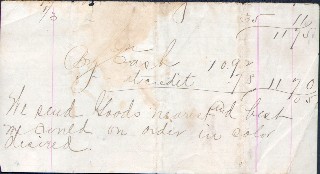 1/3 35 11
11 75
By Cash 10.92
Credit 78 11 70
05
We send Goods nearest and best
we could on order in color
desired.